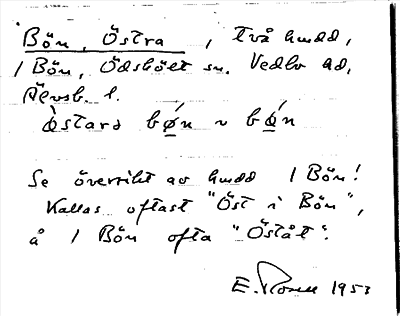 Bön, Östra, två hmd,
1 Bön, Ödsbölt sn. Vedbo hd,
Älvsb. l.
östarə bǿn ~ bǿn
Se översikt av hmd 1 Bön!
Kallas oftast "Öst i Bön",
å 1 Bön ofta "Öståt".
E. 1953